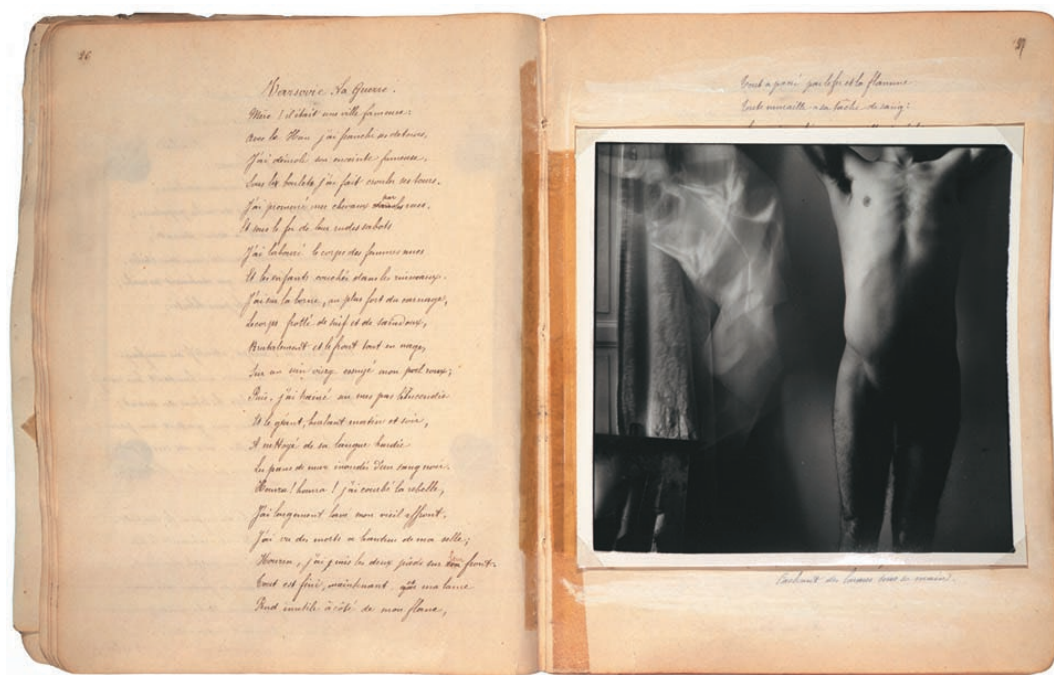 26
Varsovie. La Guerre.
Mère ! il était une ville fameuse :
Avec le Hun j'ai franchi ses détours,
J'ai démoli son enceinte fumeuse,
Sous les boulets j'ai fait crouler ses tours.
J'ai promené mes chevaux par les rues,
Et sous le fer de leur rudes sabots
J'ai labouré le corps des femmes nues
Et les enfants couchés dans les ruisseaux.
J'ai sur la borne, au plus fort du carnage,
Le corps frotté de suif et de saindoux,
Brutalement et le front tout en nage,
Sur un sein vierge essuyé mon poil roux ;
Puis, j'ai traîné sur mes pas l'Incendie
Et le géant, hurlant matin et soir,
A nettoyé de sa langue hardie
Les pans de murs inondés d'un sang noir.
Houra ! houra ! j'ai courbé la rebelle,
J'ai largement lavé mon vieil affront.
J'ai vu des morts à hauteur de ma selle ;
Hourra, j'ai mis les deux pieds sur son front.
Tout est fini, maintenant, ma lame
Pend inutile à côté de mon flanc,
27
Tout a passé par le fer et la flamme
Toute muraille a sa tache de sang :
Cachant des larmes sous sa main.